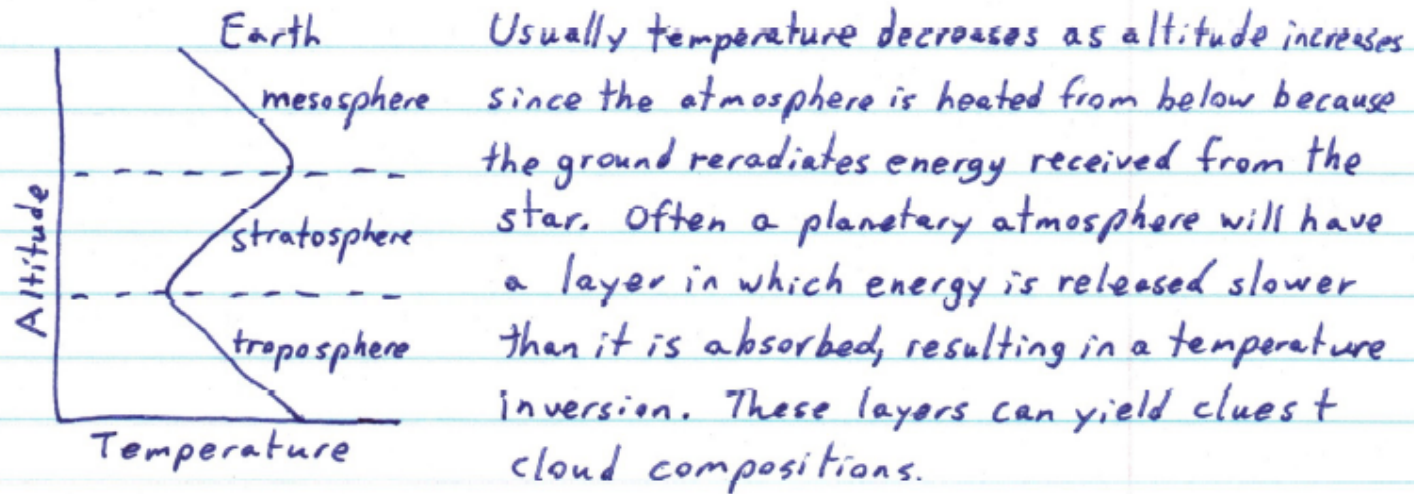 Earth
mesosphere
stratosphere
troposphere
Altitude
Temperature
Usually temperature decreases as altitude increases
since the atmosphere is heated from below because
the ground reradiates energy received from the
star. Often a planetary atmosphere will have
a layer in which energy is released slower
than it is absorbed, resulting in a temperature
inversion. These layers can yield clues t
cloud compositions.